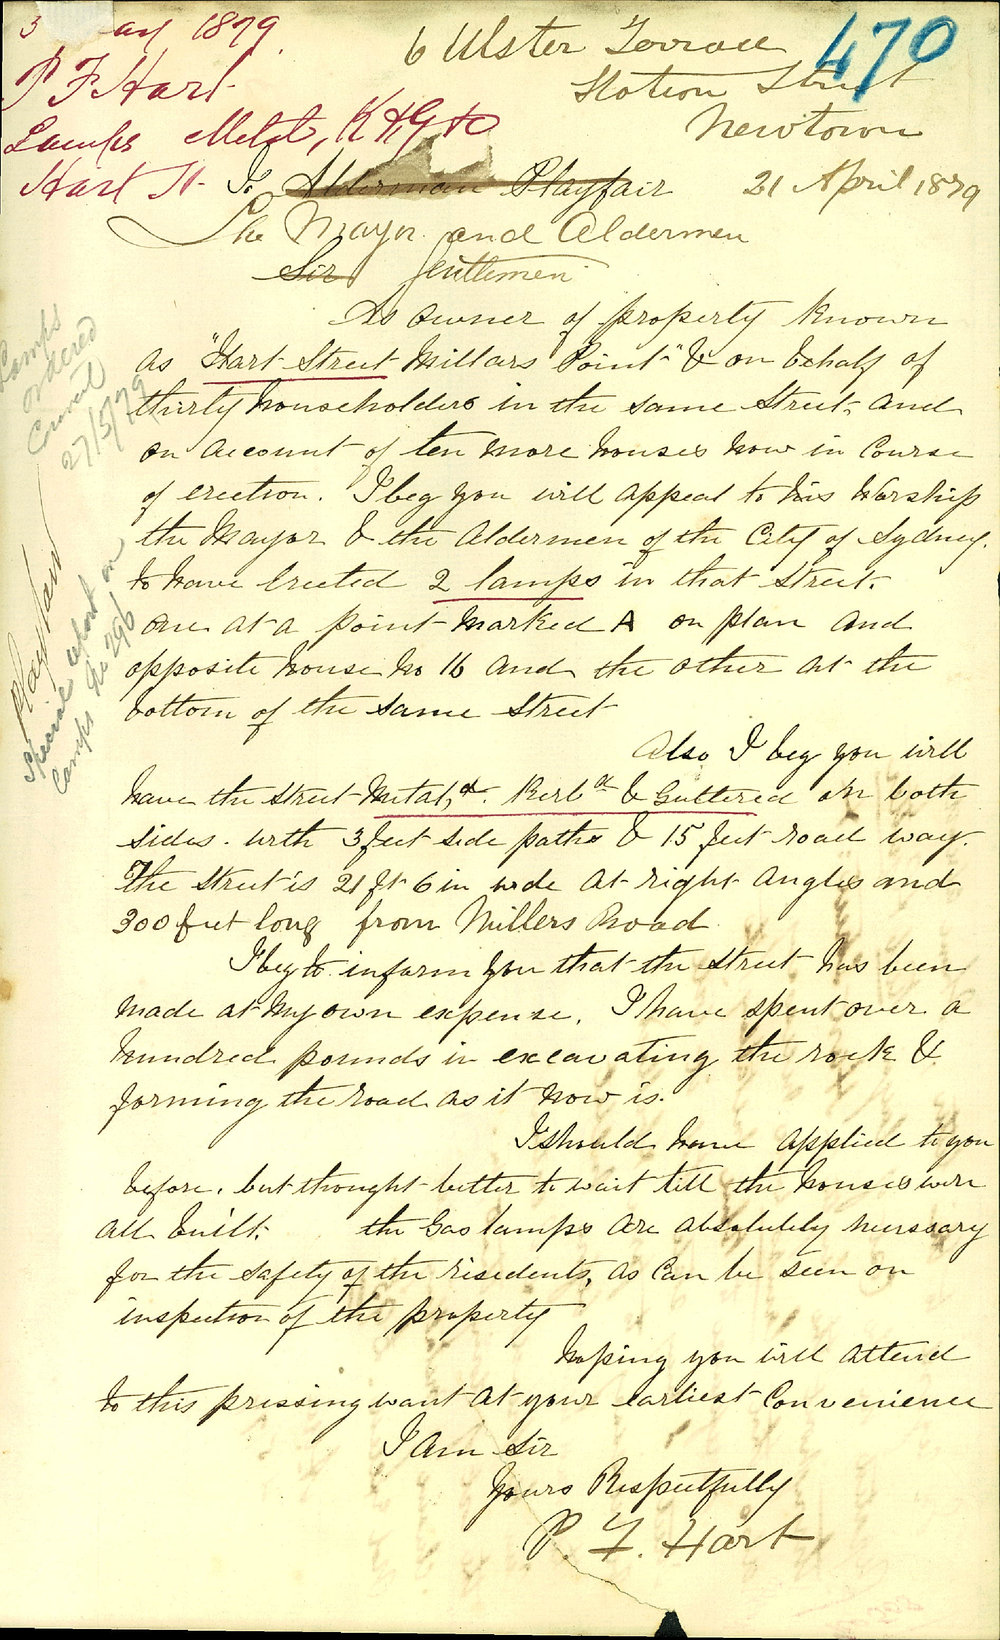 3 May 1879
P F Hart
Lamps Metal, K & G &c
Hart St
470
6 Ulster Terrace
Station Street
Newtown
21 April 1879
To Alderman Playfair
The Mayor and Aldermen
Sir Gentlemen
As owner of property known
as "Hart Street Millars Point" & on behalf of
thirty householders in the same Street, and
on account of ten more houses now in course
of erection. I beg you will appeal to his Worship
the Mayor & the Aldermen of the City of Sydney.
to have erected 2 lamps in that Street.
one at a point marked A on plan and
opposite house No 16 and the other at the
bottom of the same Street
Also I beg you will
have the street Metal,d. Kerbd & Guttered on both
sides. with 3 feet side paths & 15 feet road way.
The street is 21 ft 6 in wide at right angles and
300 feet long from Millers Road
I beg to inform you that the street has been
made at my own expense. I have spent over a
hundred pounds in excavating the rock &
forming the road as it now is.
I should have applied to you
before, but thought better to wait till the houses were
all built. the Gas lamps are absolutely necessary
for the safety of the residents, as can be seen on
inspection of the property
hoping you will attend
to this pressing want at your earliest convenience
I am Sir
Yours Respectfully
P. F. Hart
Lamps
ordered
Council
27/5/79
Playfair
Special report on
Lamps No 296